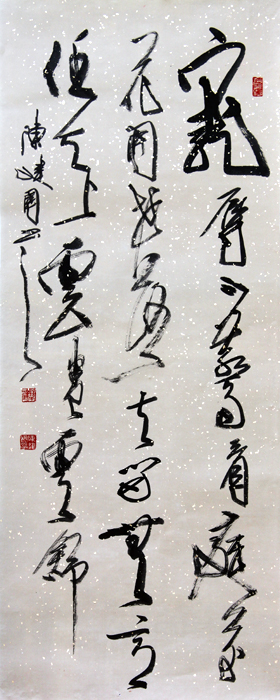 寵辱不驚看庭前
花開花落去留無意
任天上雲卷雲舒
陳